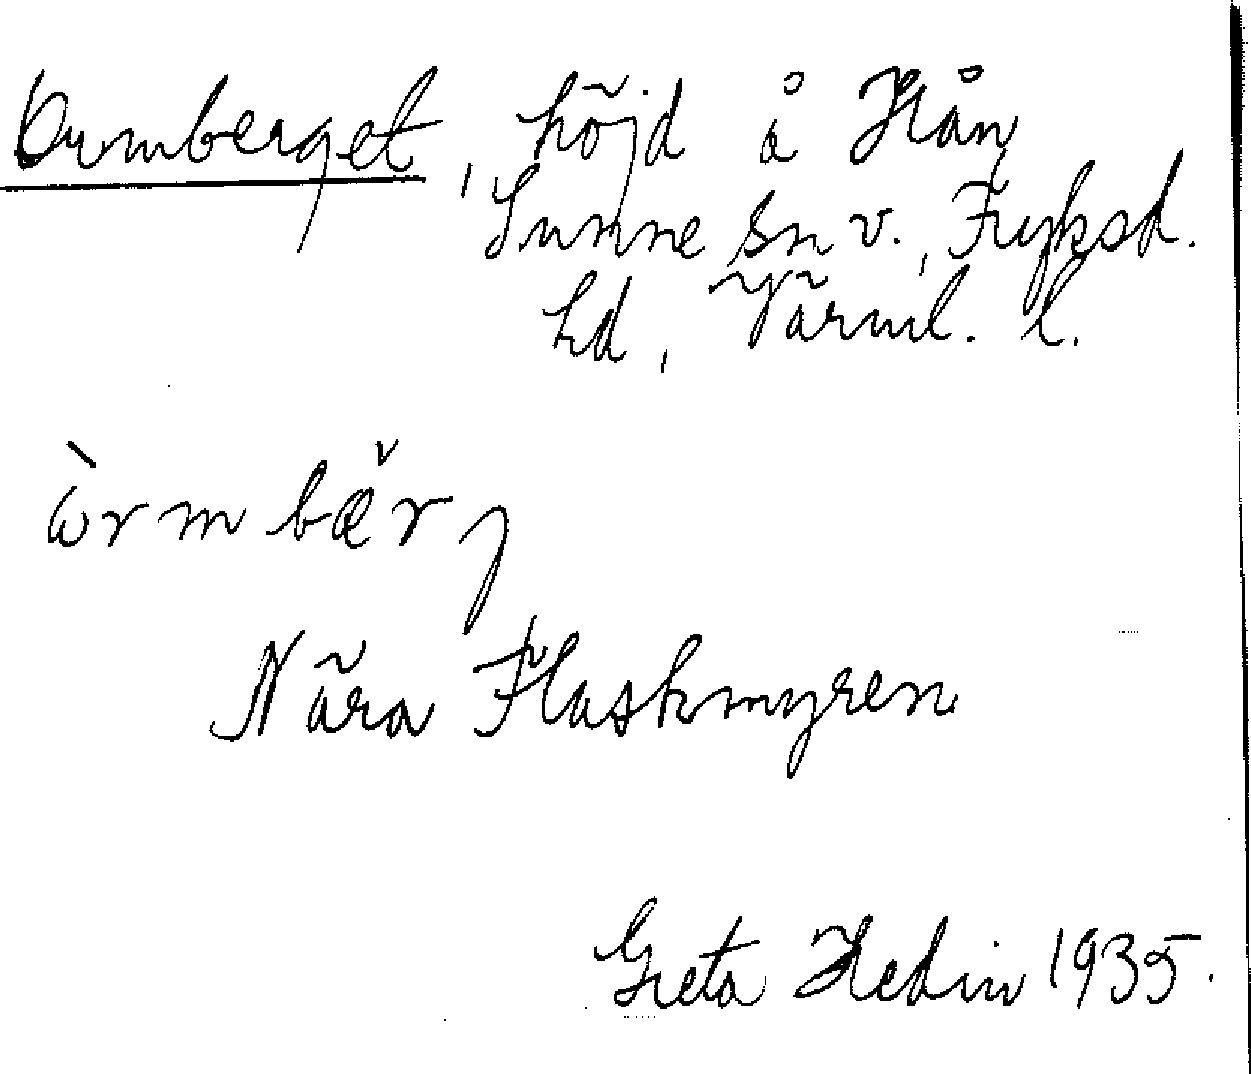 Ormberget, höjd å Hån
Sunne sn v., Fryksd.
hd, Värml. l.
ὼrmbæ̌rj
Nära Flaskmyren
Greta Hedin 1935.